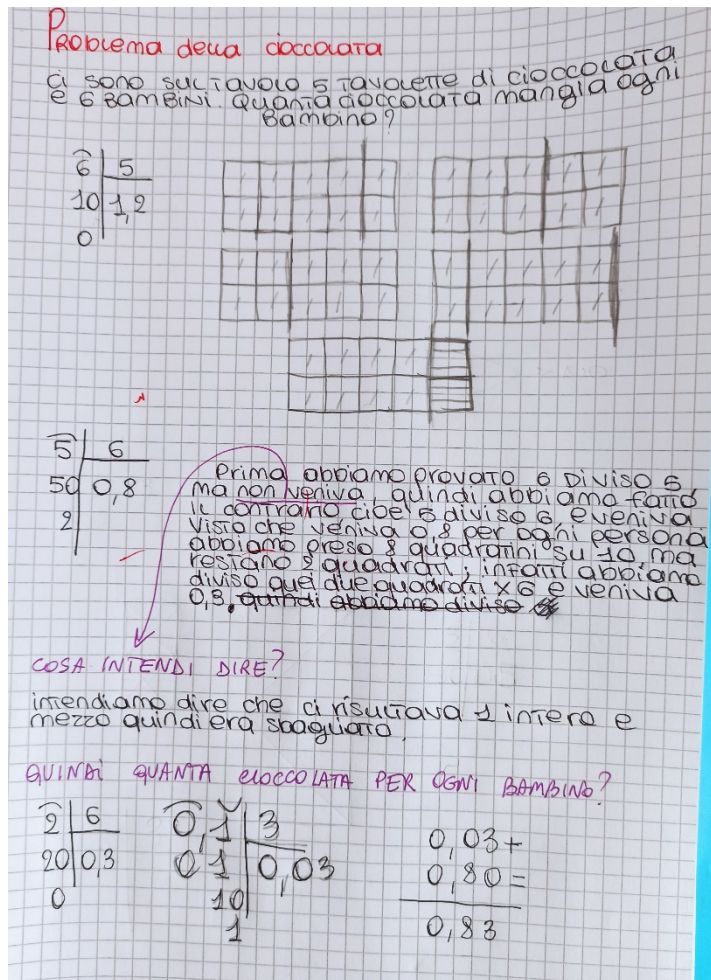 Problema della cioccolata
ci sono sul tavolo 5 tavolette di cioccolata
e 6 bambini. Quanta cioccolata mangia ogni
bambino?
6 | 5
10 | 1,2
0
5 | 6
50 | 0,8
2
Prima abbiamo provato 6 diviso 5
ma non veniva, quindi abbiamo fatto
il contrario cioè 5 diviso 6 e veniva
visto che veniva 0,8 per ogni persona
abbiamo preso 8 quadratini su 10 ma
restano 2 quadrati, infatti abbiamo
diviso quei due quadrati x 6 e veniva
0,3. quindi abbiamo diviso
COSA INTENDI DIRE?
intendiamo dire che ci risultava 1 intero e
mezzo quindi era sbagliato.
QUINDI QUANTA CIOCCOLATA PER OGNI BAMBINO?
2 | 6
20 | 0,3
0
0,1 | 3
01 | 0,03
10
1
0,03+
0,80=
0,83